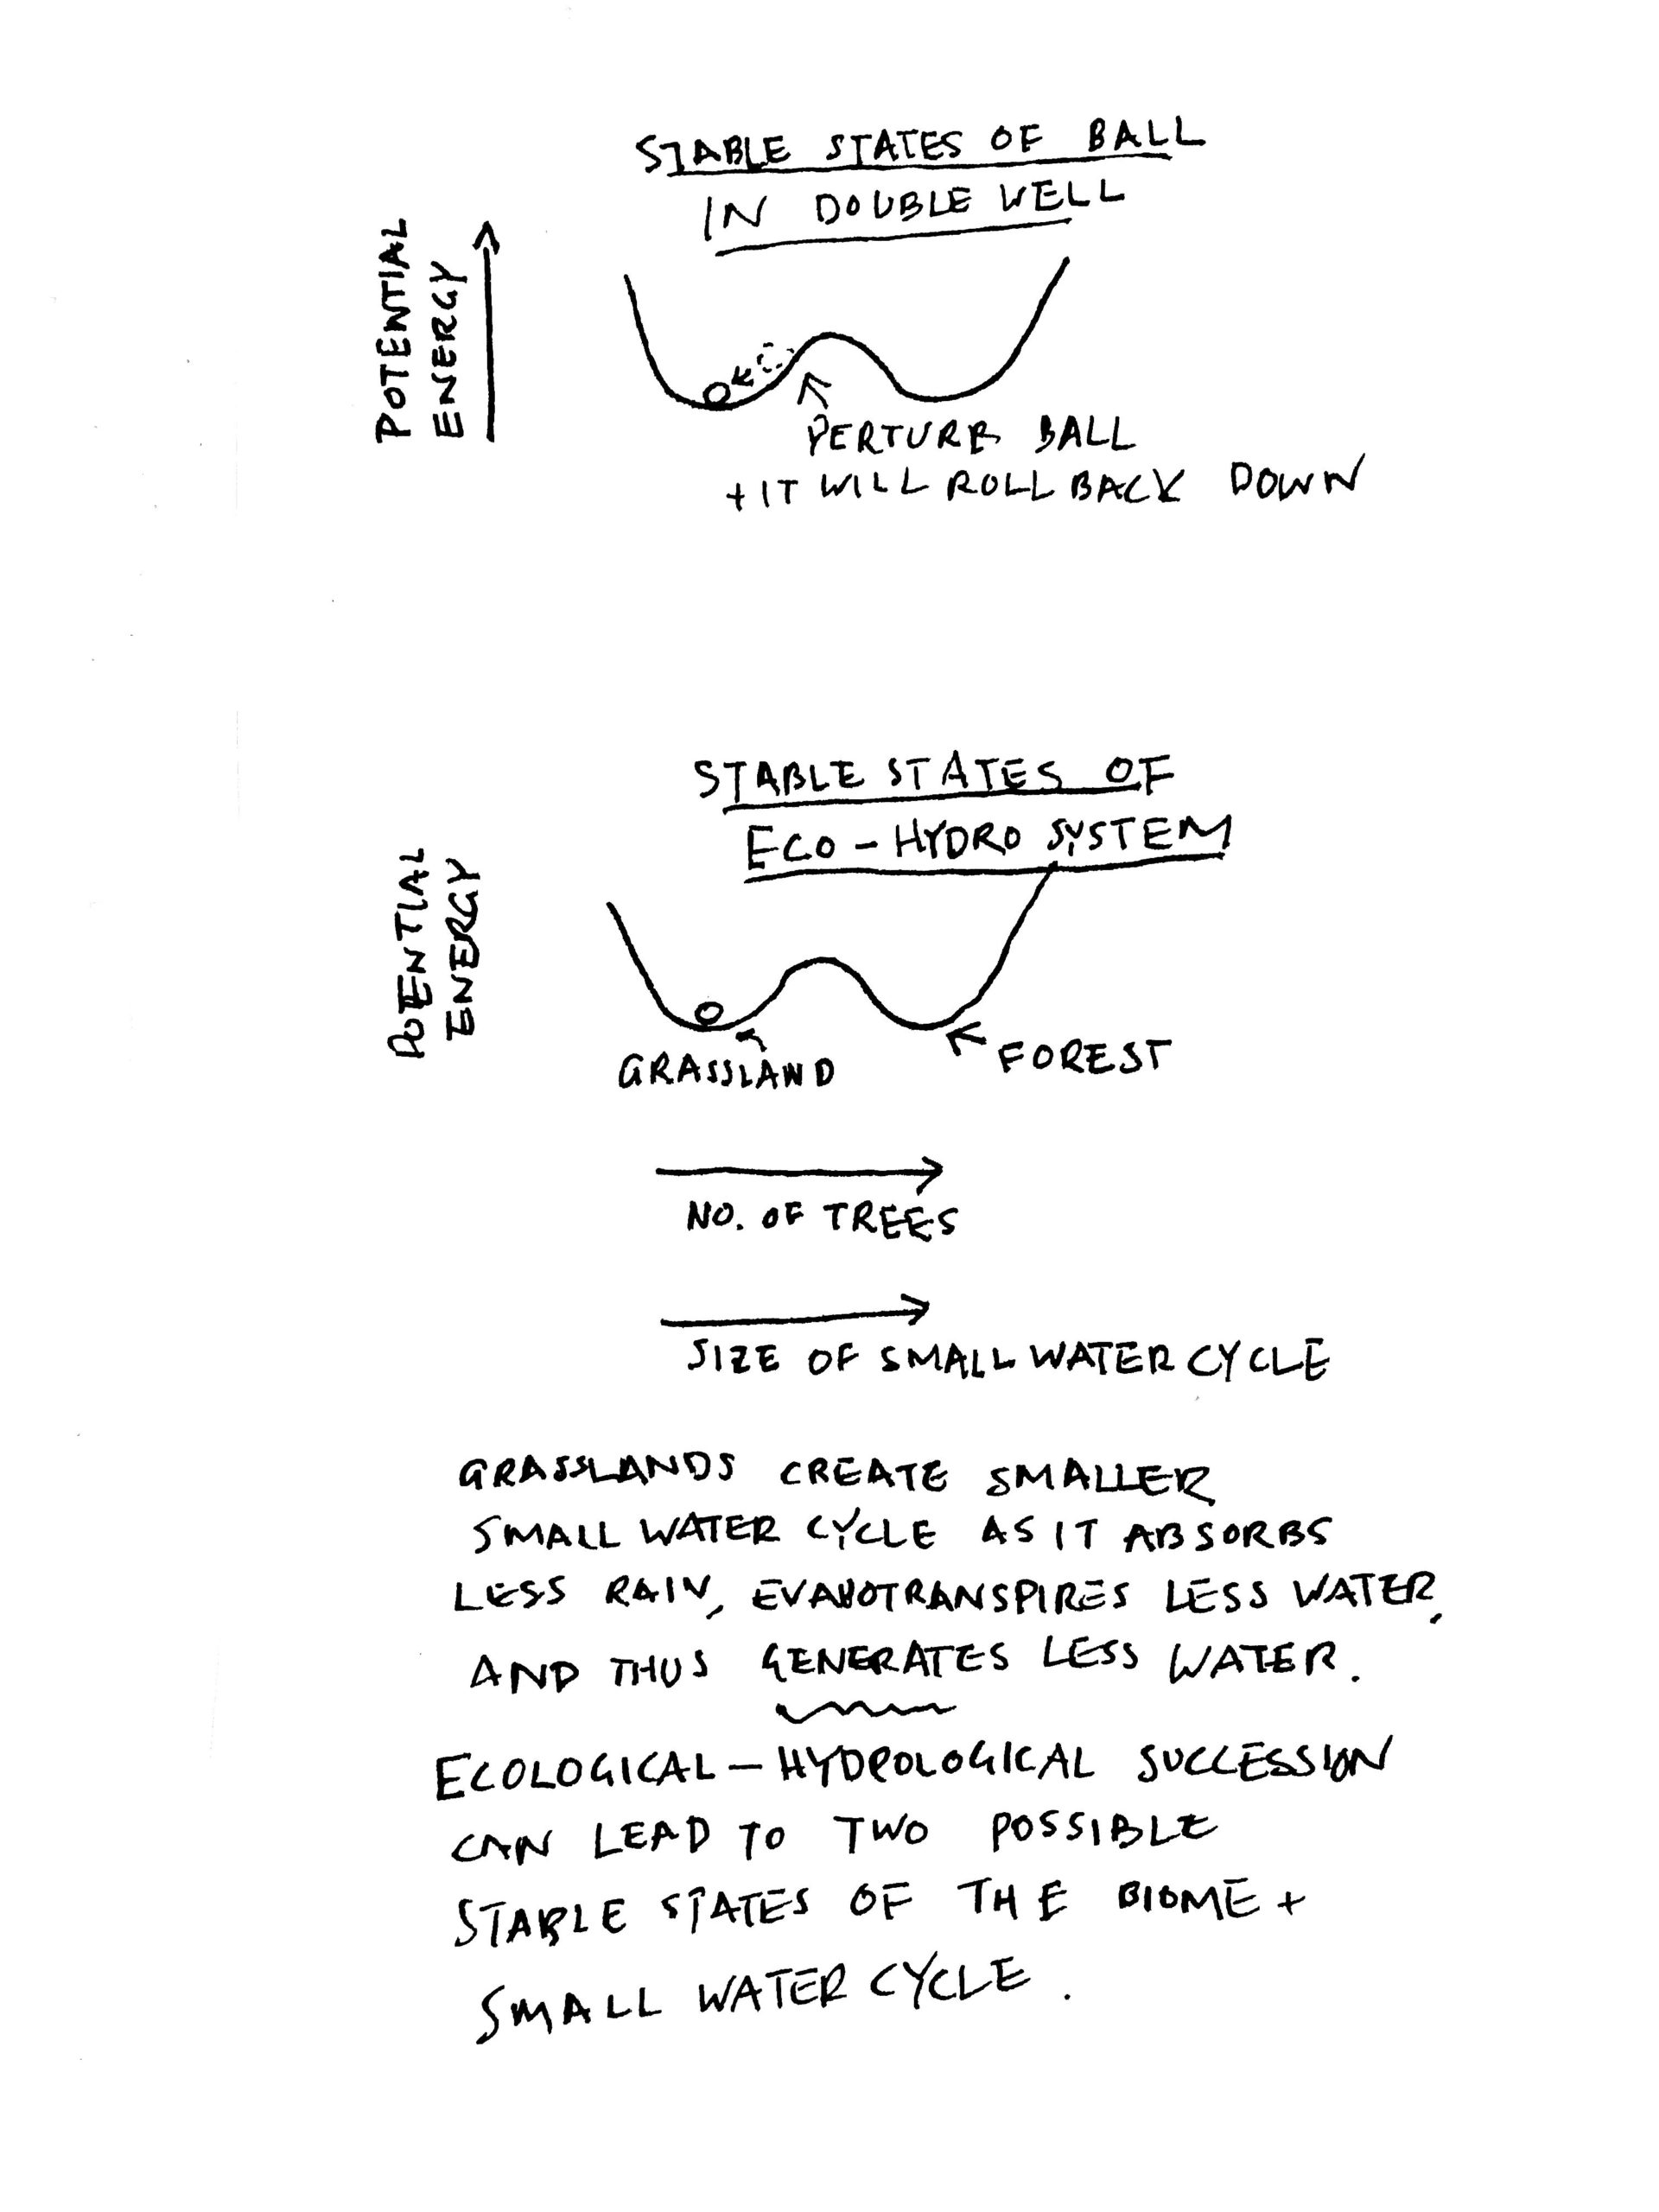 STABLE STATES OF BALL
IN DOUBLE WELL
POTENTIAL
ENERGY
PERTURB BALL
+ IT WILL ROLL BACK DOWN
STABLE STATES OF
ECO-HYDRO SYSTEM
POTENTIAL
ENERGY
GRASSLAND
FOREST
NO. OF TREES
SIZE OF SMALL WATER CYCLE
GRASSLANDS CREATE SMALLER
SMALL WATER CYCLE AS IT ABSORBS
LESS RAIN, EVAPOTRANSPIRES LESS WATER,
AND THUS GENERATES LESS WATER.
ECOLOGICAL-HYDROLOGICAL SUCCESSION
CAN LEAD TO TWO POSSIBLE
STABLE STATES OF THE BIOME +
SMALL WATER CYCLE.